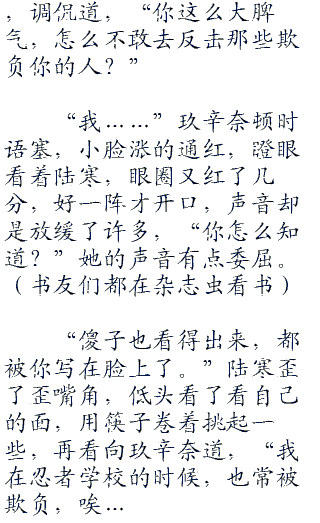 ，调侃道，“你这么大脾
气，怎么不敢去反击那些欺
负你的人？”
“我……”玖辛奈顿时
语塞，小脸涨的通红，瞪眼
看着陆寒，眼圈又红了几
分，好一阵才开口，声音却
是放缓了许多，“你怎么知
道？”她的声音有点委屈。
（书友们都在杂志虫看书）
“傻子也看得出来，都
被你写在脸上了。”陆寒歪
了歪嘴角，低头看了看自己
的面，用筷子卷着挑起一
些，再看向玖辛奈道，“我
在忍者学校的时候，也常被
欺负，唉…